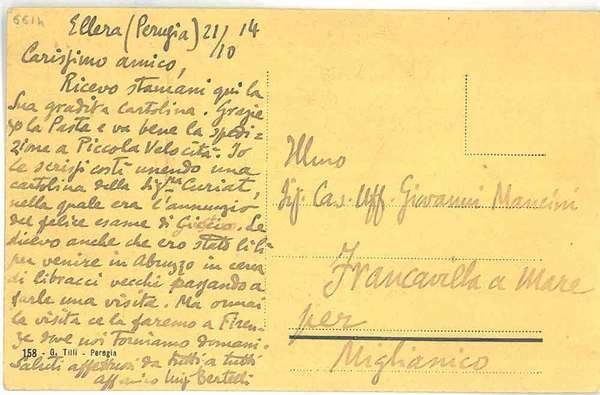 5514
Ellera (Perugia) 21/10 14
Carissimo amico,
Ricevo stamani qui la
Sua gradita cartolina. Grazie
la Pasta e va bene la spedi-
zione a Piccola Velocità. Io
Le scrissi costì unendo una
cartolina della Sig.na Curiat,
nella quale era l'annunzio
del felice esame di Giglio. Le
dicevo anche che ero stato lì lì
per venire in Abruzzo in cerca
di libracci vecchi passando a
farle una visita. Ma ormai
la visita ce la faremo a Firen-
ze dove noi torniamo domani.
Saluti affettuosi da tutti a tutti
aff amico Luigi Bertelli
158 - G. Tilli - Perugia
Illmo
Sig. Cav. Uff. Giovanni Mancini
Francavilla a Mare
per
Miglianico